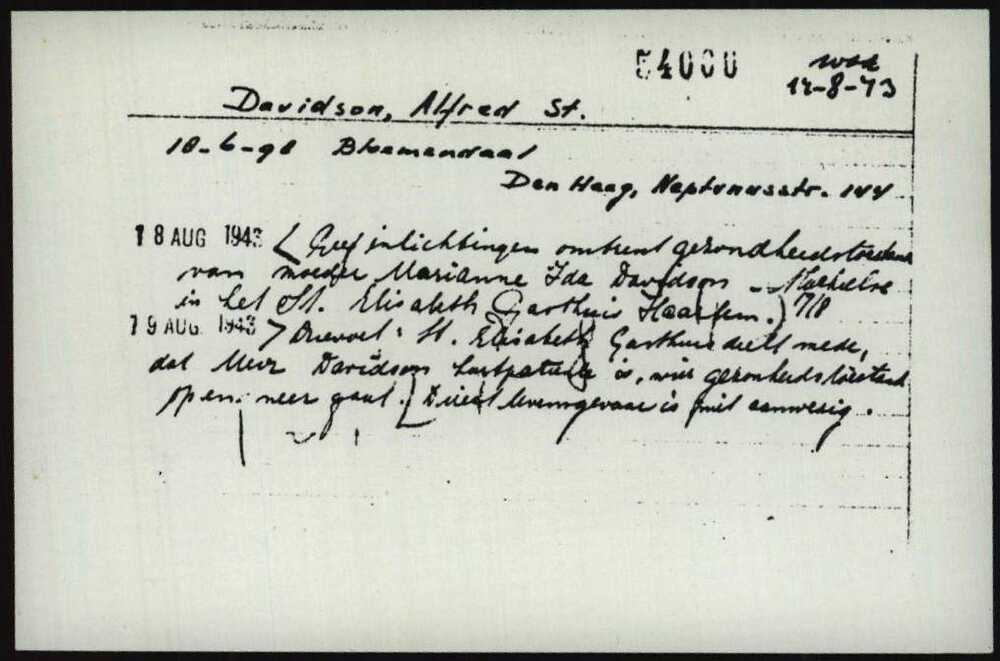 54000
12-8-43
Davidson, Alfred St.
18-6-98 Bloemendaal
Den Haag, Neptunusstr. 144
18 AUG 1943 < Geef inlichtingen omtrent gezondheidstoestand
van moeder Marianne Ida Davidson -
in het St. Elisabeth Gasthuis Haarlem.) 7/8
19 AUG. 1943 > : St. Elisabeth Gasthuis deelt mede,
dat Mevr Davidson hartpatiente is, wier gezonheidstoestand
op en neer gaat. Direct levensgevaar is niet aanwezig.